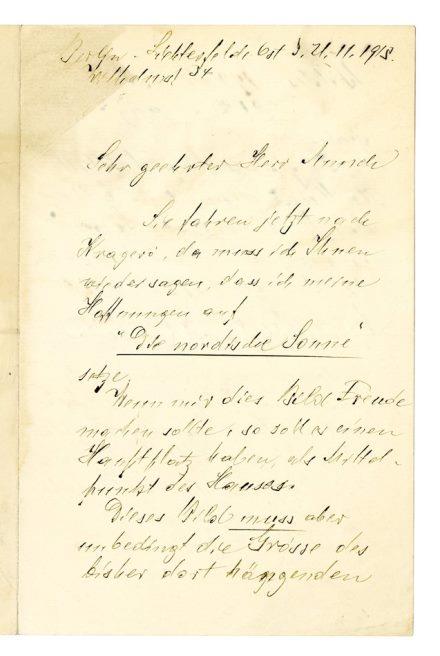 Berlin - Lichterfelde Ost d. 21.11.1915.
34
Sehr geehrter Herr Munch
Sie fahren jetzt nach
Kragerö, da muss ich Ihnen
wieder sagen, dass ich meine
Hoffnungen auf
"Die nordische Sonne"
setze.
Wenn mir dies Bild Freude
machen sollte, so soll es einen
Hauptplatz haben, als Mittel-
punkt des Hauses.
Dieses Bild muss aber
unbedingt die Grösse des
bisher dort hängenden